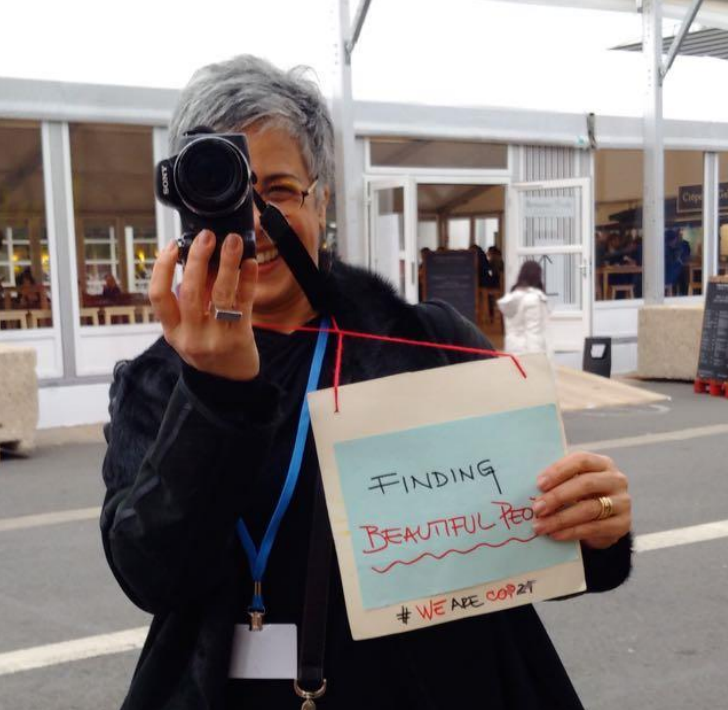 SONY
FINDING
BEAUTIFUL PEO
# WE ARE COP21